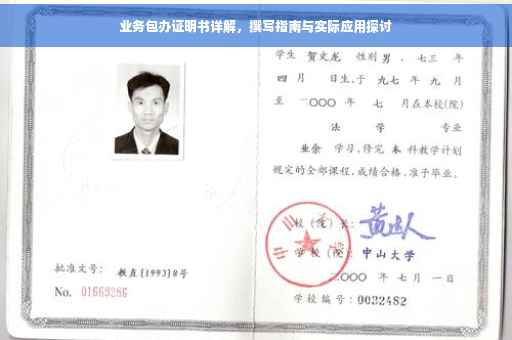 业务包办证明书详解，撰写指南与实际应用探讨
学生 贺文龙 性别 男 、七三 年
四 月 日生,于 九七 年 九 月
至 二〇〇〇 年 七 月在本校(院)
法 学 专业
业余 学习,修完 本 科教学计划
规定的全部课程,成绩合格,准予毕业。
校 (院) 长:
学 校 (院): 中山大学
二〇〇〇 年 七 月 一 日
学校编号: 0032482
批准文号: 教直[1993]8号
No. 01669286